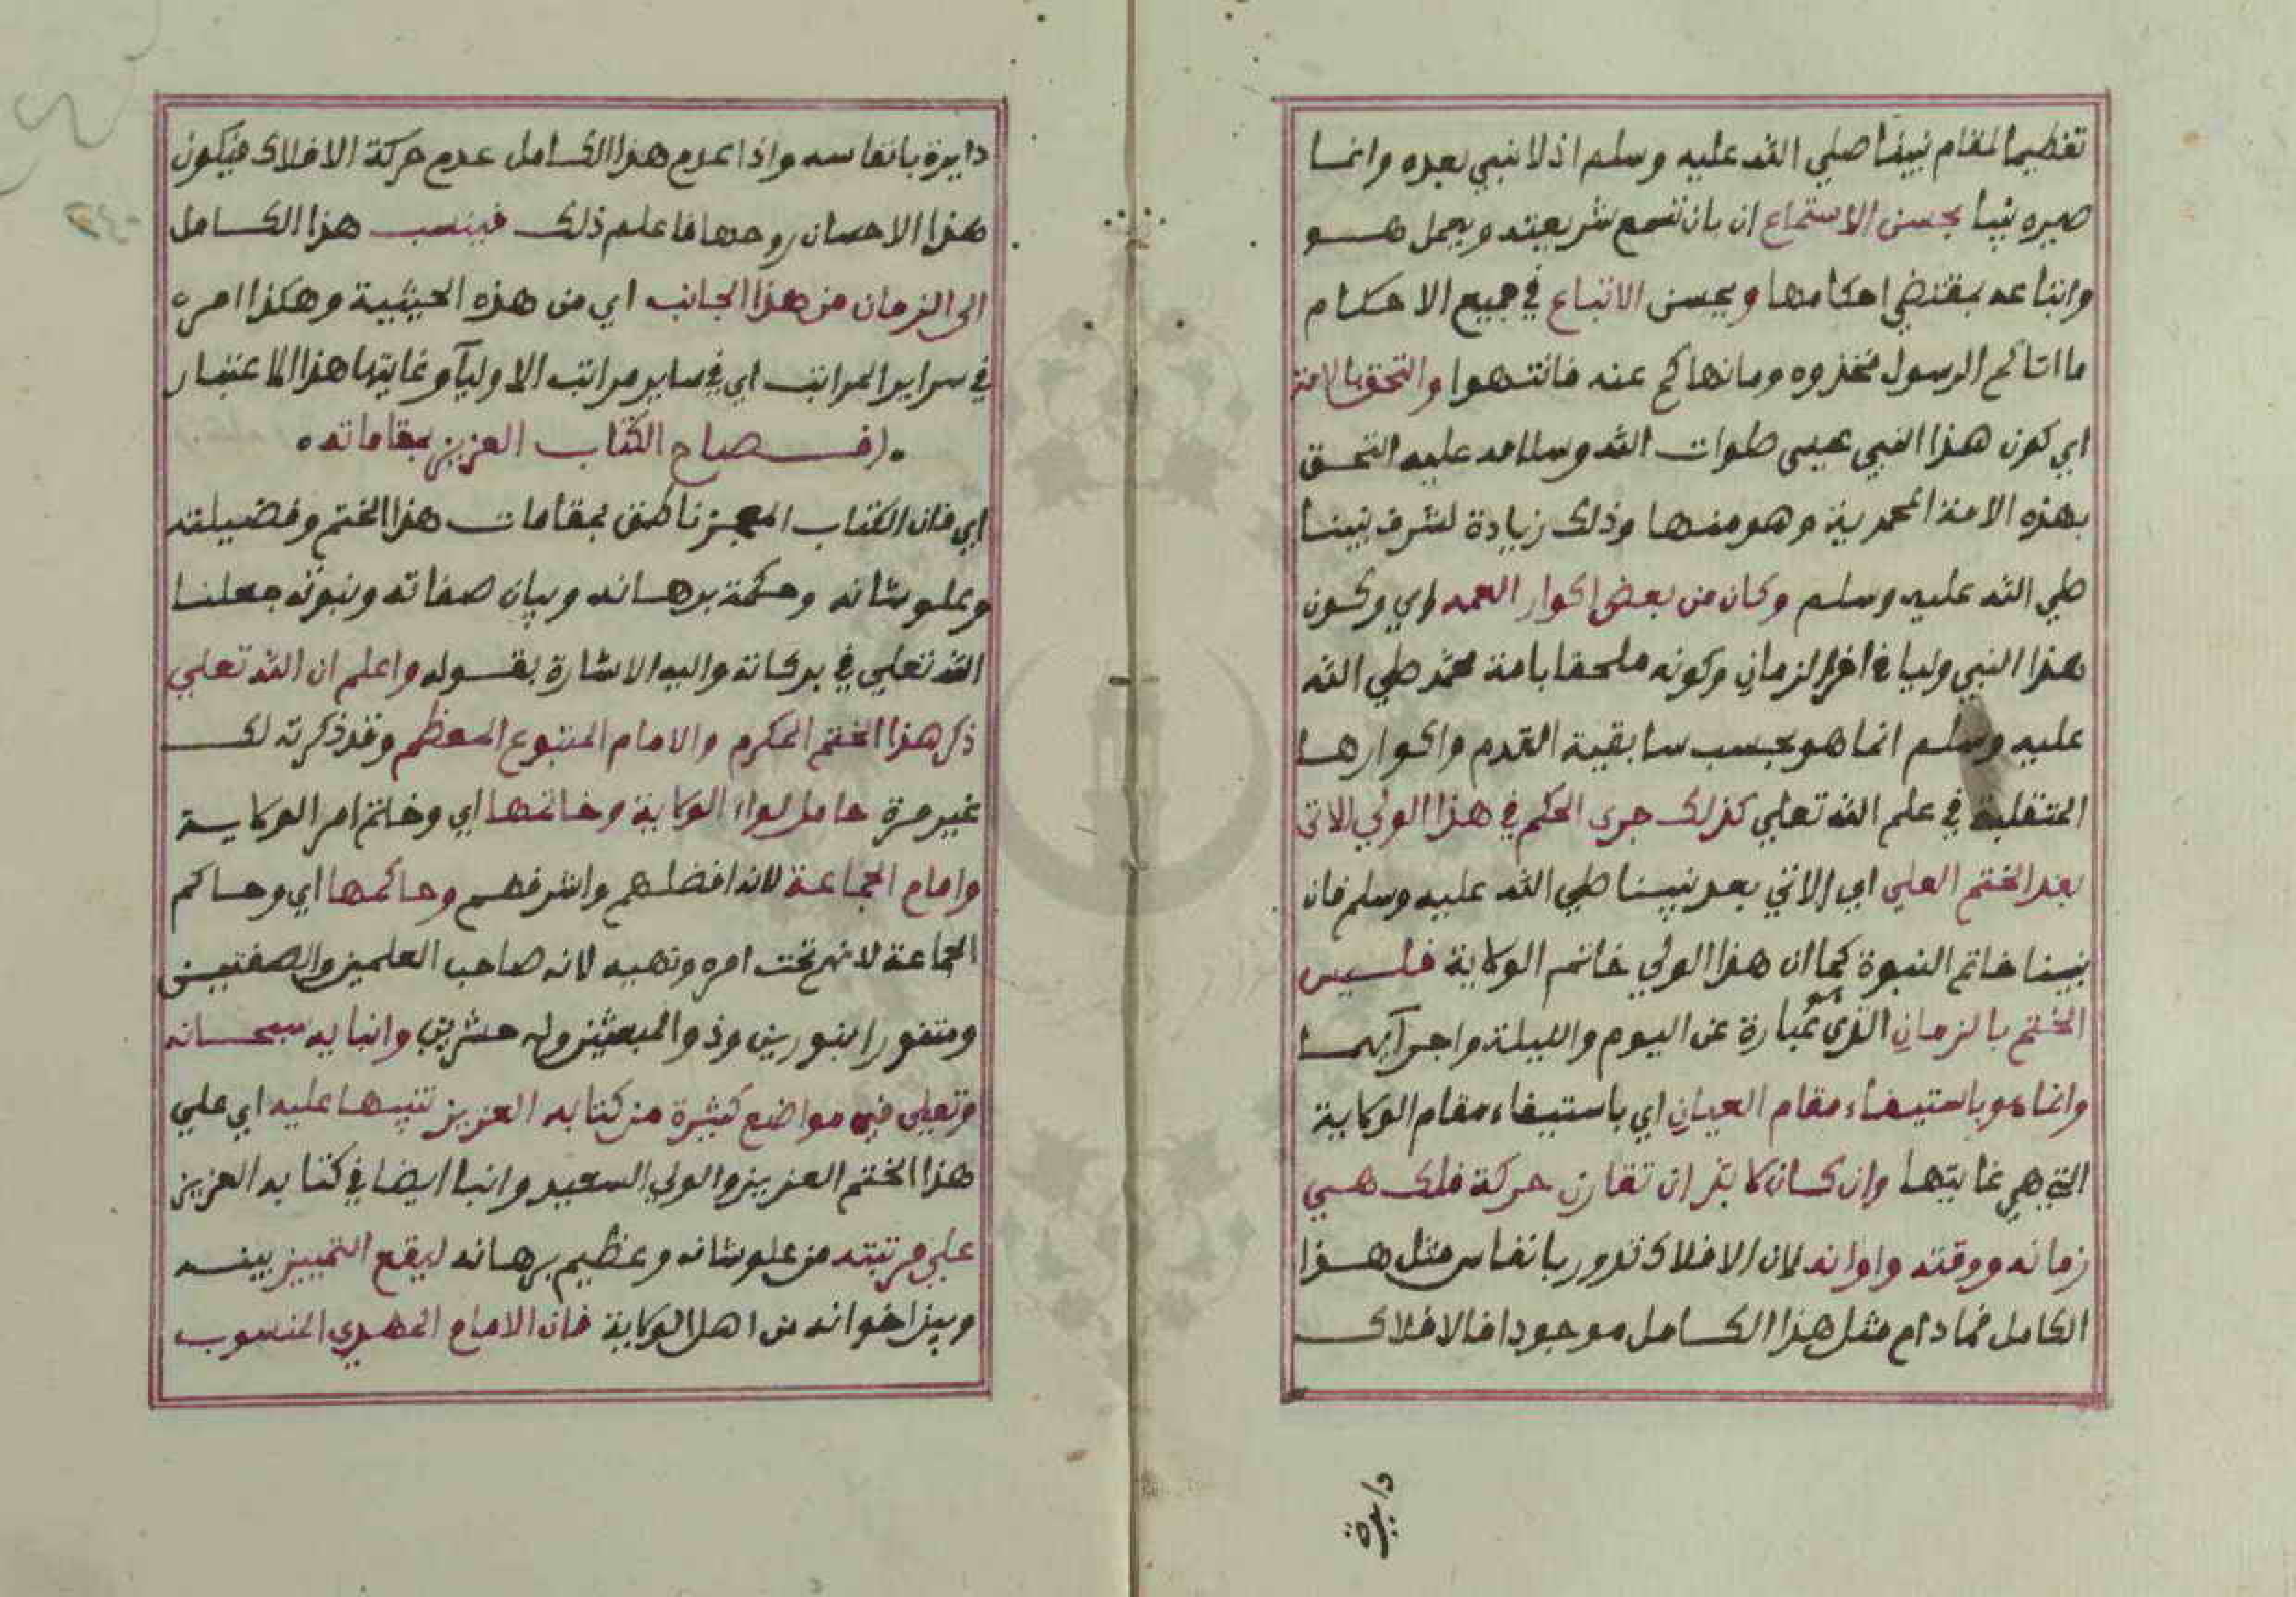 تعظيما لمقام نبينا صلي الله عليه وسلم اذ لا نبي بعده وانما
صيره نبيا بحسن الاستماع ان بان تسمع شريعته ويعمل هو
واتباعه بمقتضي احكامها وبحسن الاتباع في جميع الاحكام
ما اتاكم الرسول فخذوه وما نهاكم عنه فانتهوا والتحق بالامة
اي كون هذا النبي عيسى صلوات الله وسلامه عليه التحق
بهذه الامة المحمدية وهو منها وذلك زيادة لشرف نبينا
صلي الله عليه وسلم وكان من بعض اكوار العمه اي وكون
هذا النبي وليا في اخر الزمان وكونه ملحقا بامة محمد صلي الله
عليه وسلم انما هو بحسب سابقية القدم واكوارها
المتقلبة في علم الله تعلي كذلك جرى الحكم في هذا الولي الاتى
بعد الختم العلي اي الاتي بعد نبينا صلي الله عليه وسلم فان
نبينا خاتم النبوة كما ان هذا الولي خاتم الولاية فليس
الختم بالزمان الذى هو عبارة عن اليوم والليلة واجرآيهما
وانما هو باستيفاء مقام العيان اي باستيفاء مقام الولاية
التي هي غايتها وان كان لا بد ان تقارن حركة فلك هي
زمانه ووقته واوانه لان الافلاك تدور بانفاس مثل هذا
الكامل فما دام مثل هذا الكامل موجودا فالافلاك
دايرة
دايرة بانفاسه واذا عدم هذا الكامل عدم حركة الافلاك فيكون
هذا الاحسان روحها فاعلم ذلك فينسب هذا الكامل
الى الزمان من هذا الجانب اي من هذه الحيثية وهكذا امره
في سراير المراتب اي في ساير مراتب الاوليآ وغايتها هذا الاعتبار
افصاح الكتاب العزيز بمقاماته
اي فان الكتاب المعجز ناطق بمقامات هذا الختم وفضيلته
وعلو شانه وحكمة برهانه وبيان صفاته ونبوته جعلنا
الله تعلي في بركاته واليه الاشارة بقوله واعلم ان الله تعلي
ذكر هذا الختم المكرم والامام المتبوع المعظم وقد ذكرته لك
غير مرة حامل لواء الولاية وخاتمها اي وخاتم امر الولاية
وامام الجماعة لانه افضلهم واشرفهم وحاكمها اي وحاكم
الجماعة لانهم تحت امره ونهيه لانه صاحب العلمين والصفتين
ومتنور النورين وذو المبعثين وله حشرين وانبا به سبحانه
وتعلي في مواضع كثيرة من كتابه العزيز تنبيها عليه اي علي
هذا الختم العزيز والولي السعيد وانبا ايضا في كتابه العزيز
علي مرتبته من علو شانه وعظيم برهانه ليقع التمييز بينه
وبين اخوانه من اهل الولاية فان الامام المهدي المنسوب